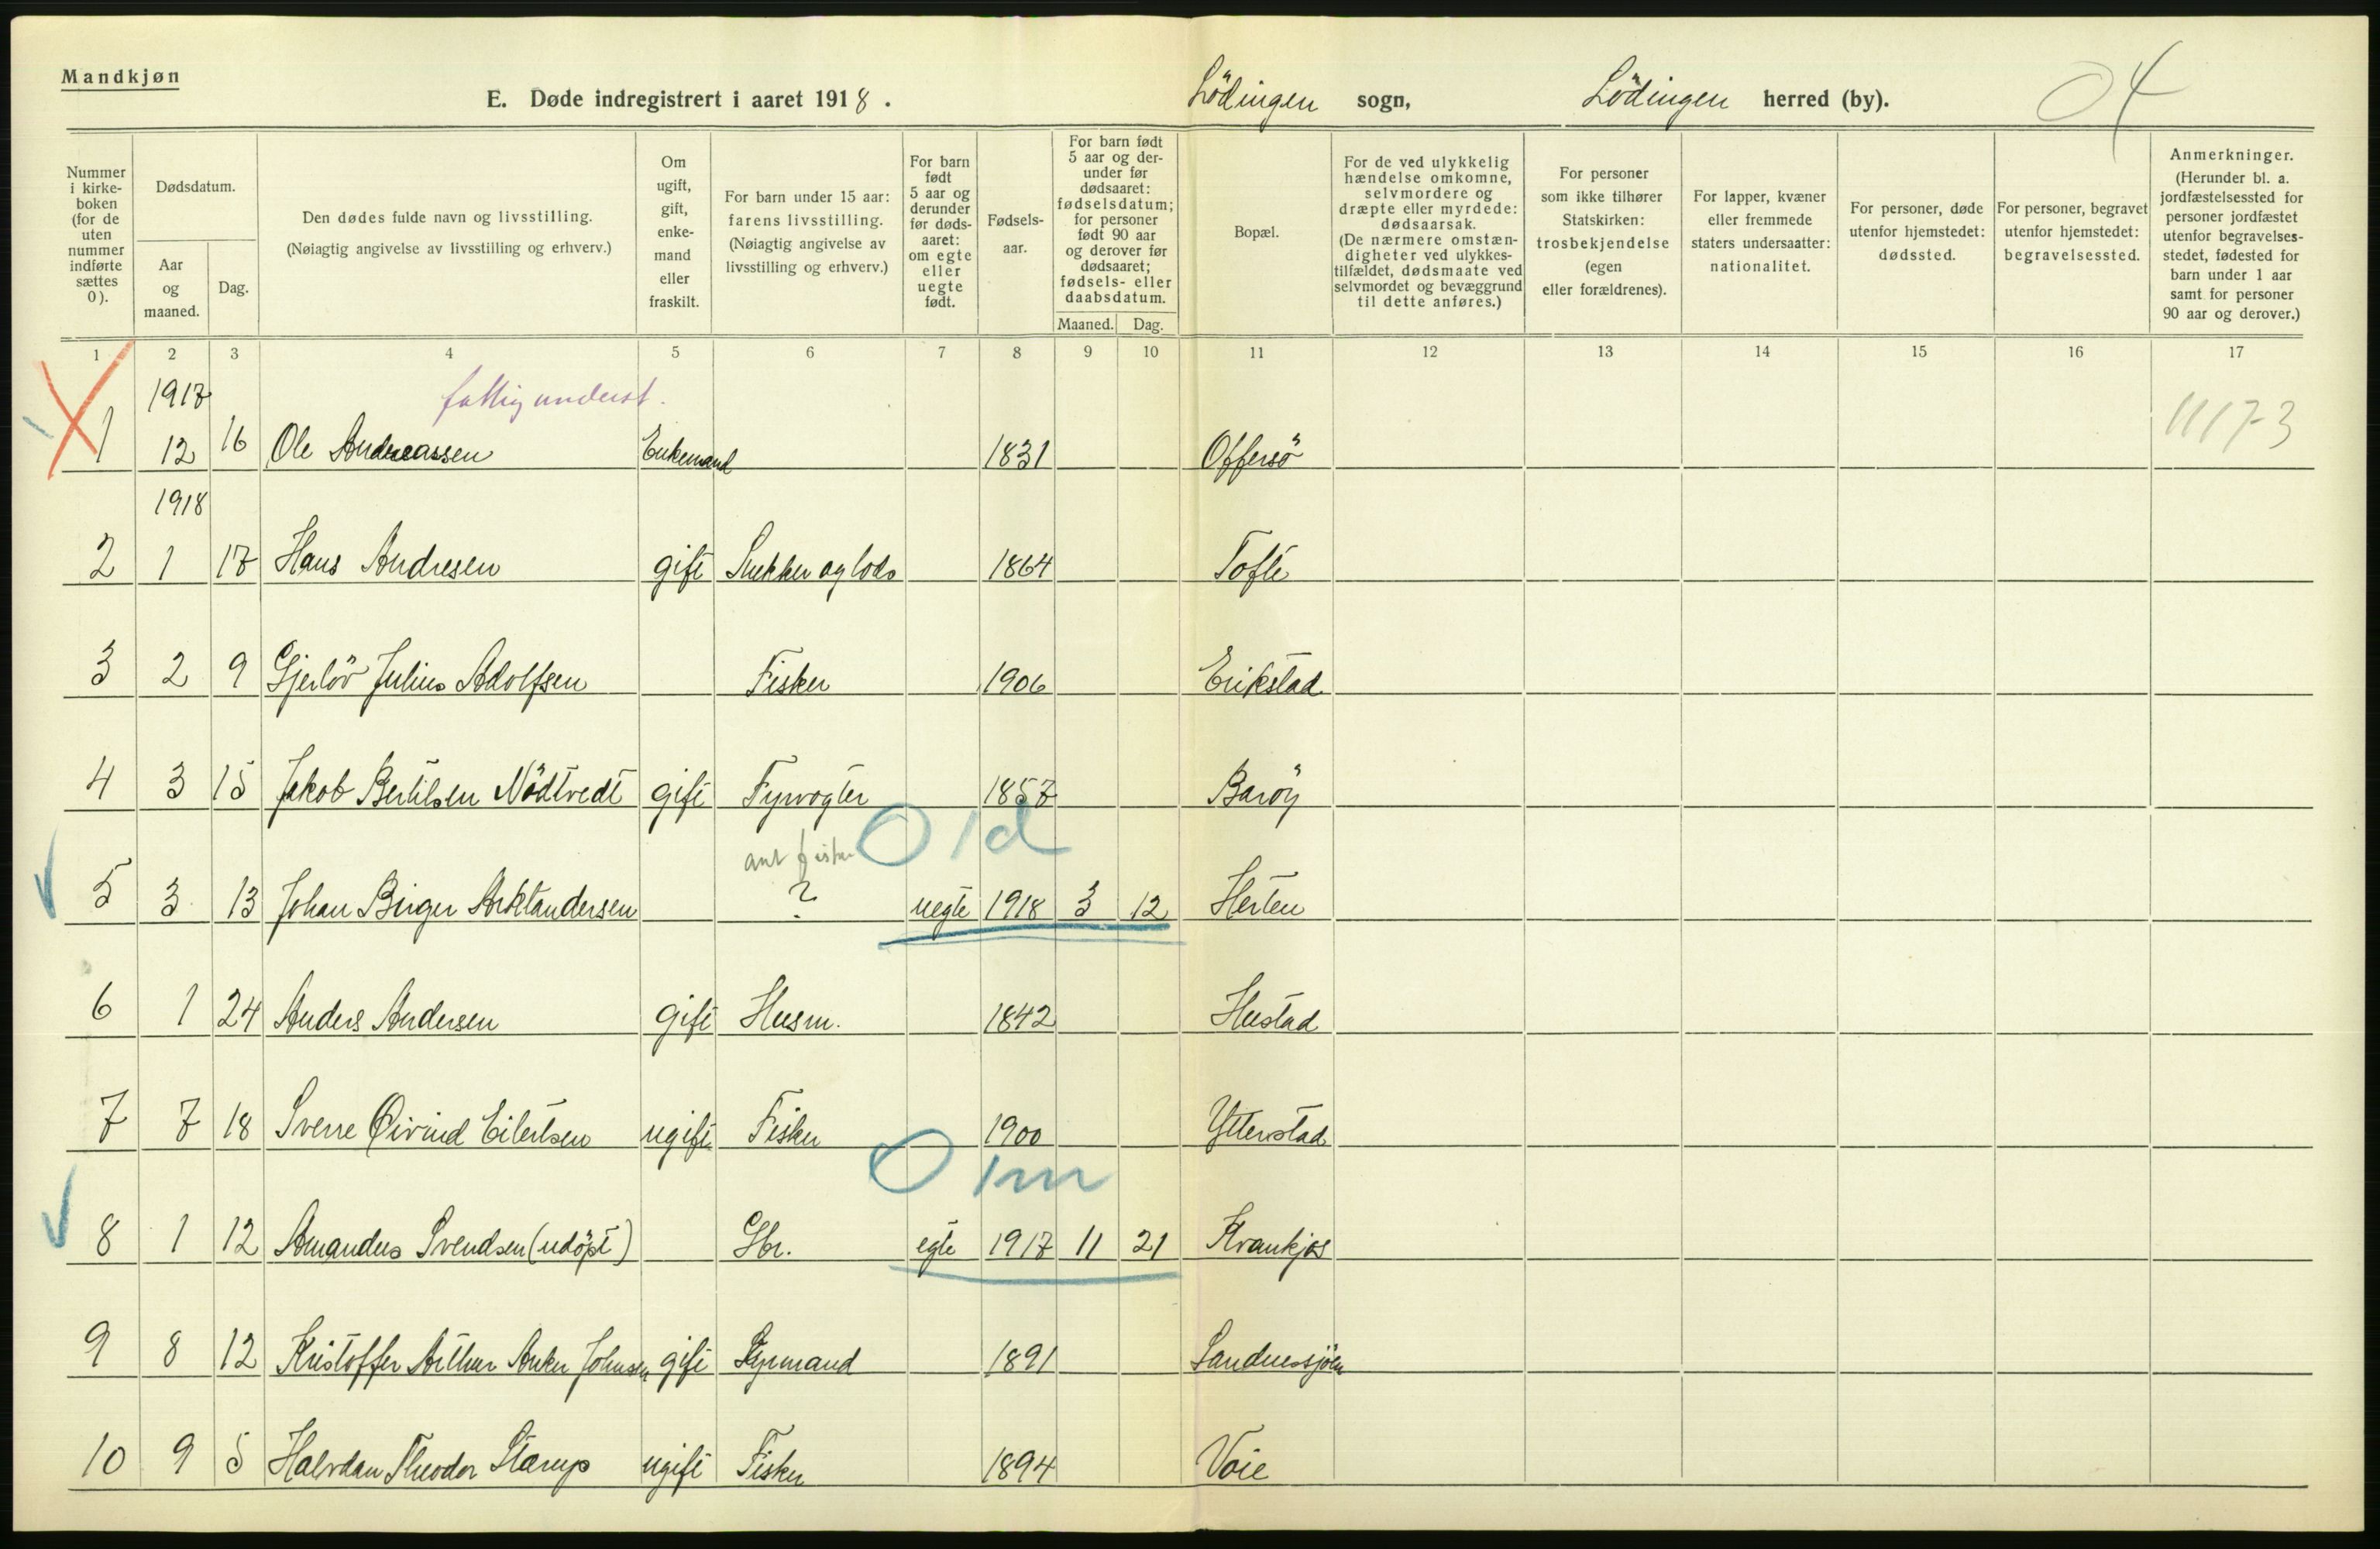 Mandkjøn
E. Døde indregistrert i aaret 1918.
Lödingen sogn, Lödingen herred (by).
04
Nummer i kirkeboken (for de uten nummer indførte sættes 0).
Dødsdatum.
Aar og maaned.
Dag.
Den dødes fulde navn og livsstilling.
(Nøiagtig angivelse av livsstilling og erhverv.)
Om ugift, gift, enkemand eller fraskilt.
For barn under 15 aar: farens livsstilling.
(Nøiagtig angivelse av livsstilling og erhverv.)
For barn født 5 aar og derunder før dødsaaret: om egte eller uegte født.
Fødselsaar.
For barn født 5 aar og derunder før dødsaaret: fødselsdatum; for personer født 90 aar og derover før dødsaaret; fødsels- eller daabsdatum.
Maaned. Dag.
Bopæl.
For de ved ulykkelig hændelse omkomne, selvmordere og dræpte eller myrdede: dødsaarsak.
(De nærmere omstændigheter ved ulykkestilfældet, dødsmaate ved selvmordet og bevæggrund til dette anføres.)
For personer som ikke tilhører Statskirken: trosbekjendelse (egen eller forældrenes).
For lapper, kvæner eller fremmede staters undersaatter: nationalitet.
For personer, døde utenfor hjemstedet: dødssted.
For personer, begravet utenfor hjemstedet: begravelsessted.
Anmerkninger.
(Herunder bl. a. jordfæstelsessted for personer jordfæstet utenfor begravelsesstedet, fødested for barn under 1 aar samt for personer 90 aar og derover.)
1 2 3 4 5 6 7 8 9 10 11 12 13 14 15 16 17
1917 fattigunderst.
1 12 16 Ole Andreassen Enkemand 1831 Offersö 11173
1918
2 1 17 Hans Andresen gift Snekker og lods 1864 Tofte
3 2 9 Gjerlöv Julius Adolfsen Fisker 1906 Erikstad
4 3 15 Jakob Bertilsen Nödtvedt gift Fyrvogter 1857 Baröy
ant fisker 0 1d
5 3 13 Johan Birger Arktandersen ? uegte 1918 3 12 Herten
6 1 24 Anders Andersen gift Husm. 1842 Hustad
7 7 18 Sverre Øivind Eilertsen ugift Fisker 1900 Ytterstad
0 1m
8 1 12 Amandus Svendsen (udöpt) Gbr. egte 1917 11 21 Kvankjos
9 8 12 Kristoffer Arthur Anker Johnsen gift Styrmand 1891 Sandnessjöen
10 9 5 Halvdan Theodor Starup ugift Fisker 1894 Voie